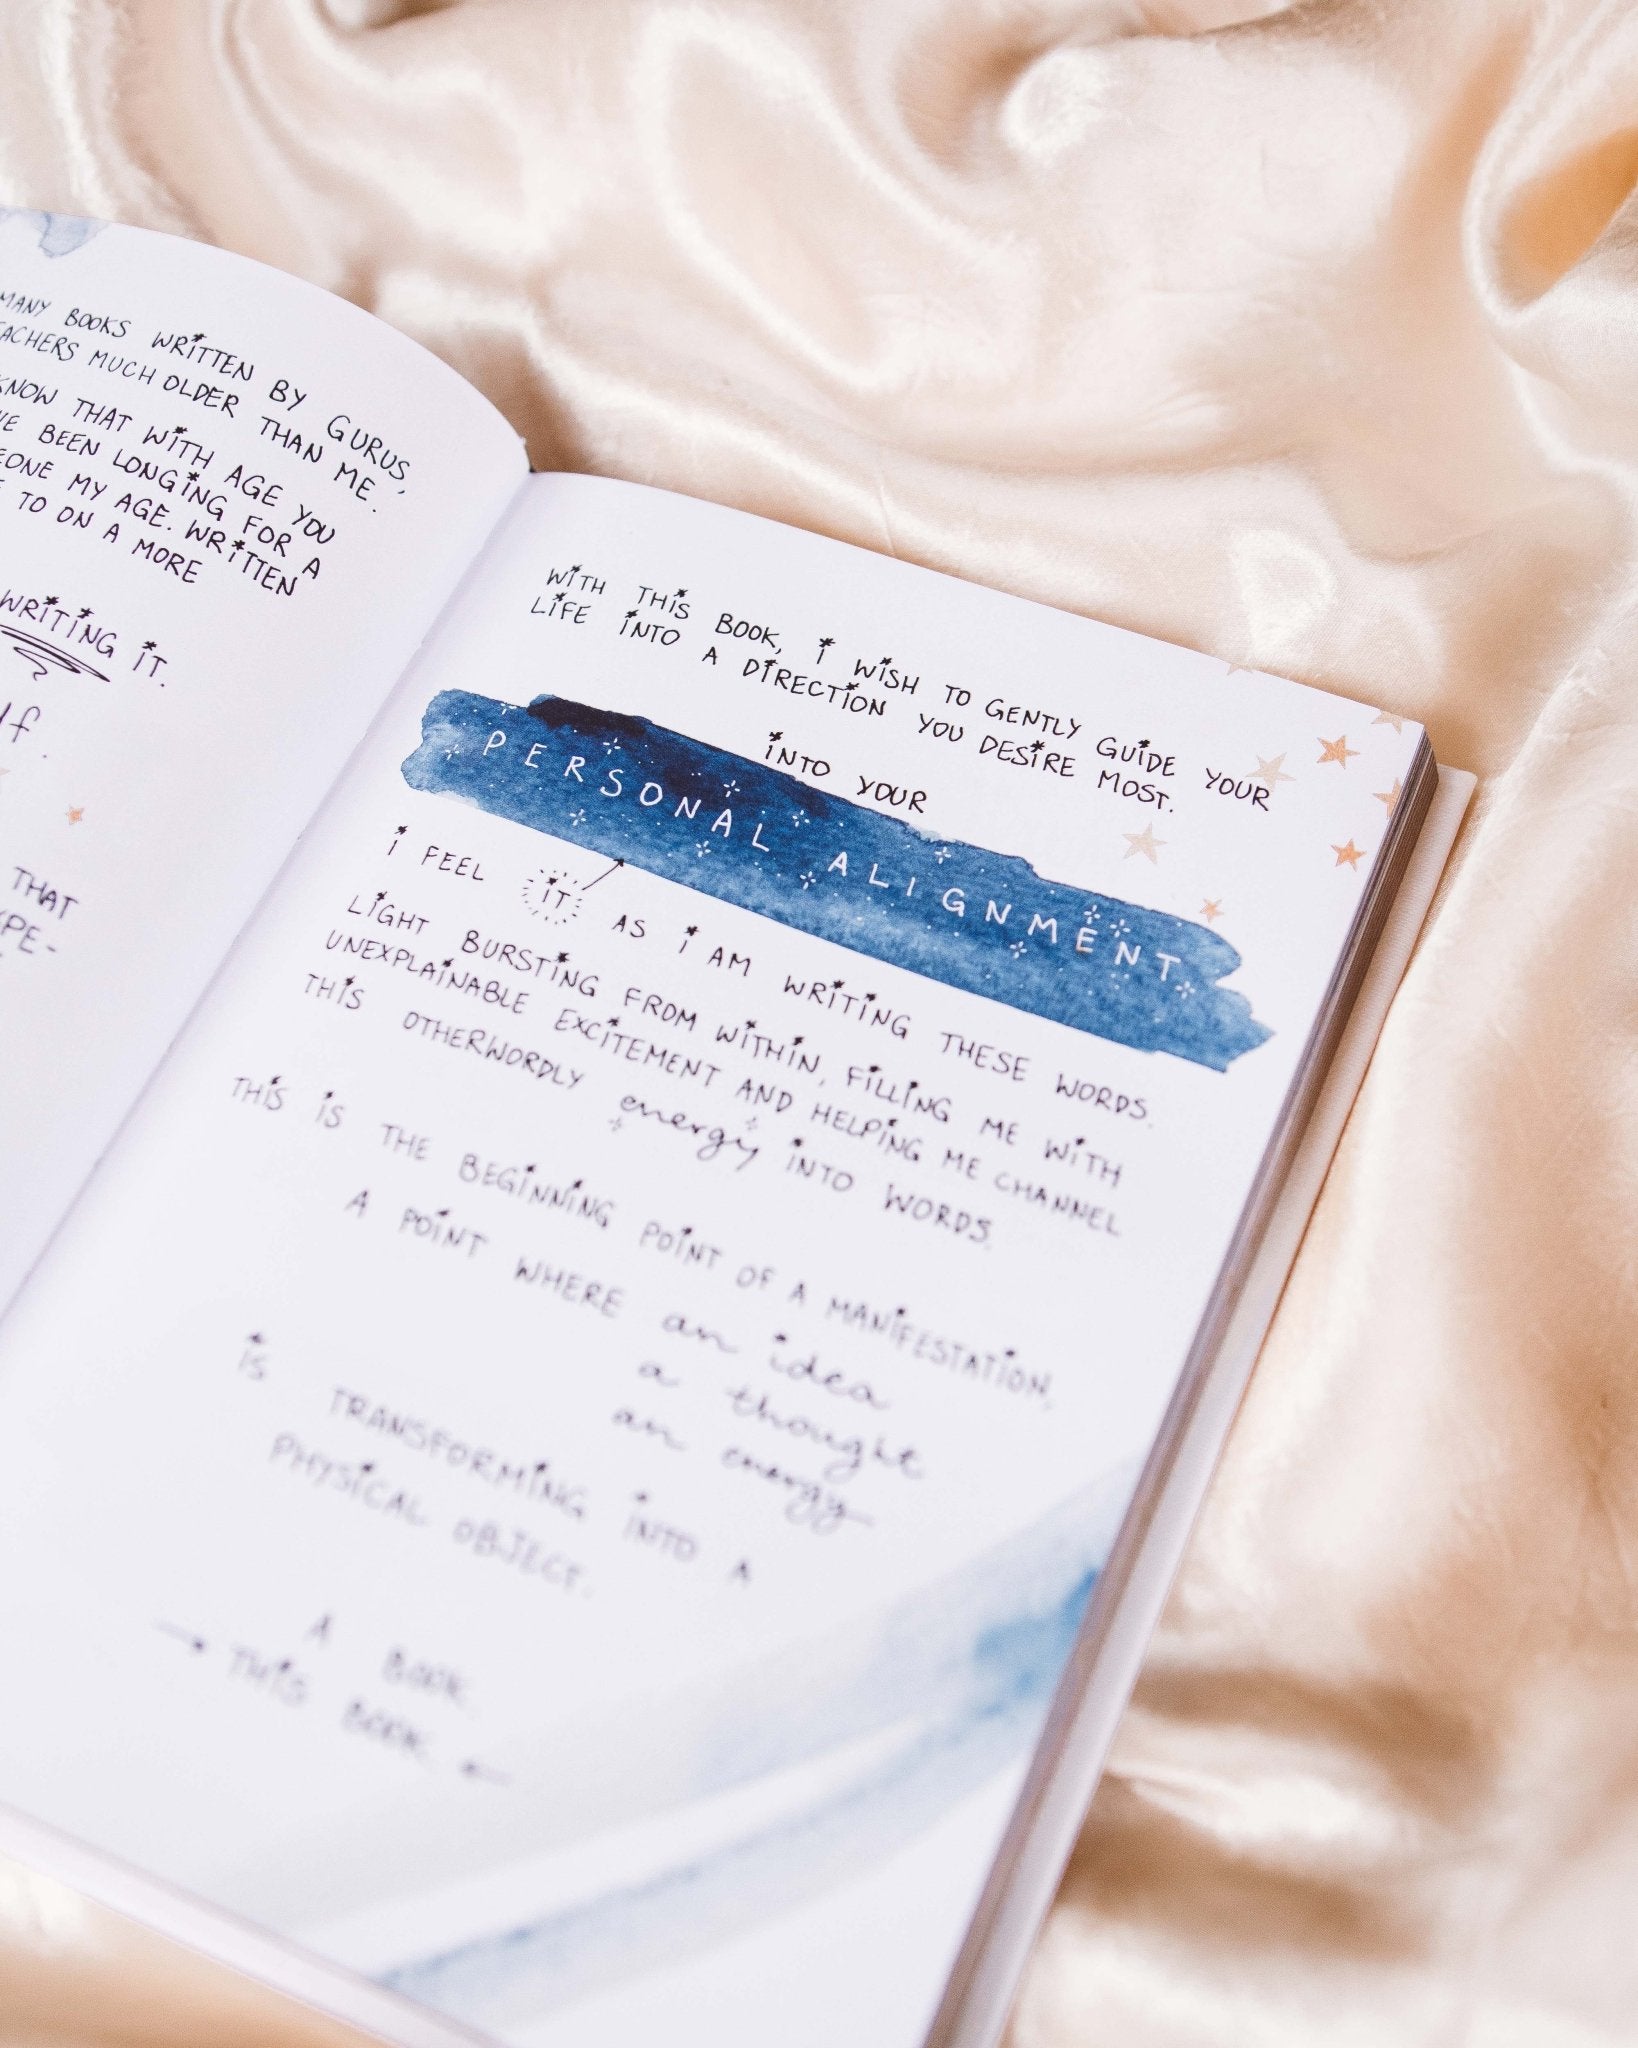 MANY BOOKS WRITTEN BY GURUS,
TEACHERS MUCH OLDER THAN ME.
KNOW THAT WITH AGE YOU
BEEN LONGING FOR A
MY AGE. WRITTEN
TO ON A MORE
WRITING IT.
THAT
WITH THIS BOOK, I WISH TO GENTLY GUIDE YOUR
LIFE INTO A DIRECTION YOU DESIRE MOST.
INTO YOUR
PERSONAL ALIGNMENT
I FEEL IT AS I AM WRITING THESE WORDS.
LIGHT BURSTING FROM WITHIN, FILLING ME WITH
UNEXPLAINABLE EXCITEMENT AND HELPING ME CHANNEL
THIS OTHERWORDLY energy INTO WORDS.
THIS IS THE BEGINNING POINT OF A MANIFESTATION,
A POINT WHERE an idea
a thought
an energy
IS TRANSFORMING INTO A
PHYSICAL OBJECT.
A BOOK
THIS BOOK.